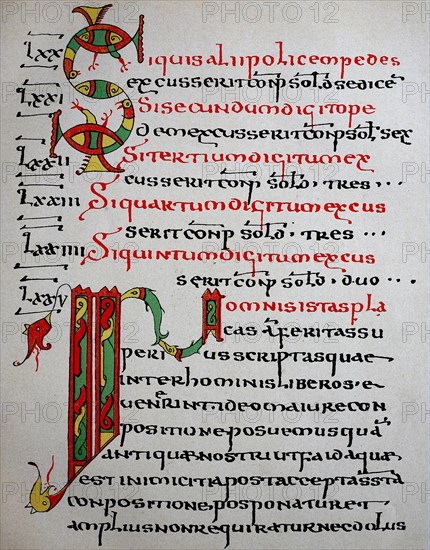 LXX Siquisaliipolicempedes
excusseritconp sold sedice
LXXI Sisecundumdigitope
demexcusseritconp sol sex
LXXII Sitertiumdigitumex
cusseritconp sold · tres · · ·
LXXIII Siquartumdigitumexcus
seritconp sold · tres · · ·
LXXIIII Siquintumdigitumexcus
seritconp sold · duo · · ·
LXXV Inomnisistaspla
feritassu
periusscriptasquae
interhominisliberos·e
venerint·ideomaiurecon
positioneposuemusqua
antiquaenostriutfaidaquae
estinimicitiapostaccepta
conpositione,posponaturet
ampliusnonrequiraturnecdolus
PHOTO 12